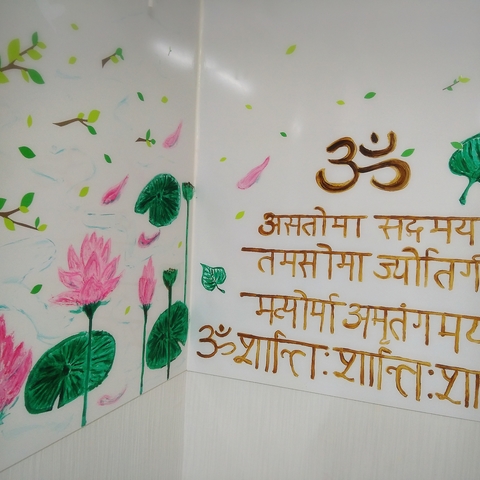 ॐ
असतोमा सद्गमय
तमसोमा ज्योतिर्ग
मत्योर्मा अमृतंगमय
ॐ शान्तिः शान्तिः शा